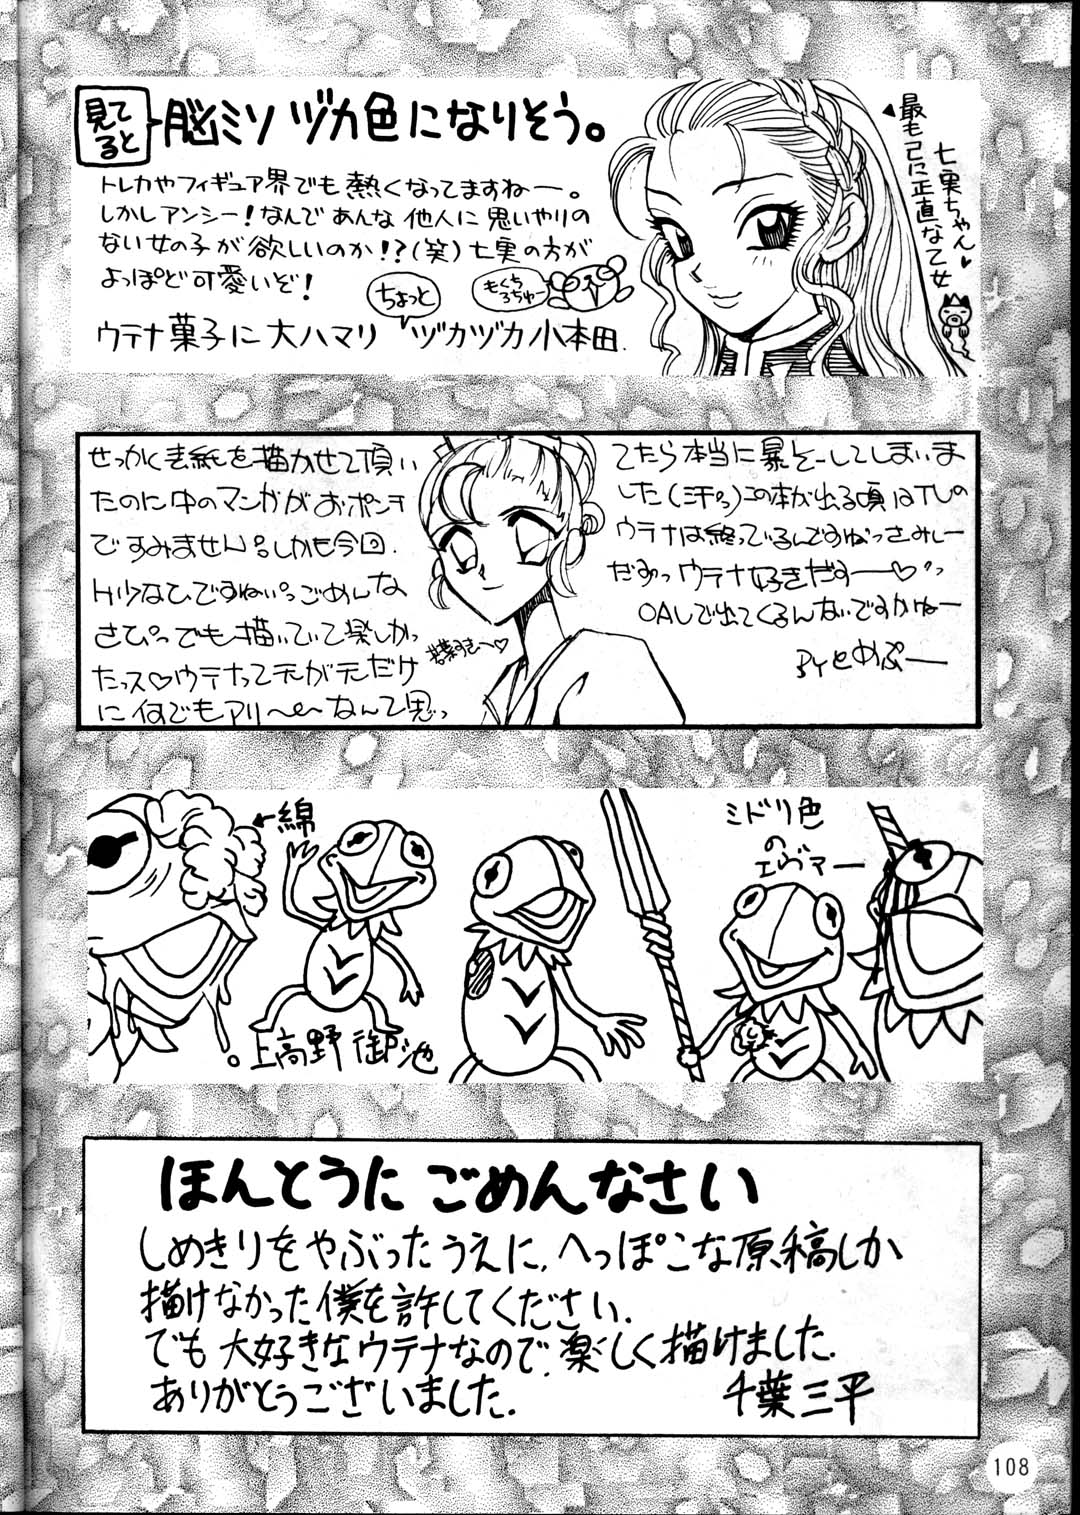 見てると
脳ミソ ヅカ色になりそう。
トレカやフィギュア界でも熱くなってますねー。
しかしアンシー!なんであんな他人に思いやりの
ない女の子が欲しいのか!?(笑)七実の方が
よっぽど可愛いぞ!
ちょっと
もくちろちゅー
ウテナ菓子に大ハマリ ヅカヅカ小本田.
七実ちゃん♥
最も己に正直な乙女
せっかく表紙を描かせて頂い
たのに中のマンガがおポンチ
ですみません。しかも今回.
H少なひですねぃ。ごめんな
さひっでも描いていて楽しかっ
たっス♡ウテナって元が元だけ
に何でもアリ〜でなんて思っ
若葉すきー♡
てたら本当に暴そーしてしまいま
した(ミ汗。)この本が出る頃はTVの
ウテナは終っているんですねっさみしー
だみっウテナ好きだすー♡
OAVで出てくるんないですかねー
BYとめぷー
←綿
ミドリ色
の
エヴァー
上高野御池
ほんとうに ごめんなさい
しめきりをやぶったうえに、へっぽこな原稿しか
描けなかった僕を許してください.
でも大好きなウテナなので、楽しく描けました.
ありがとうございました.
千葉三平
108